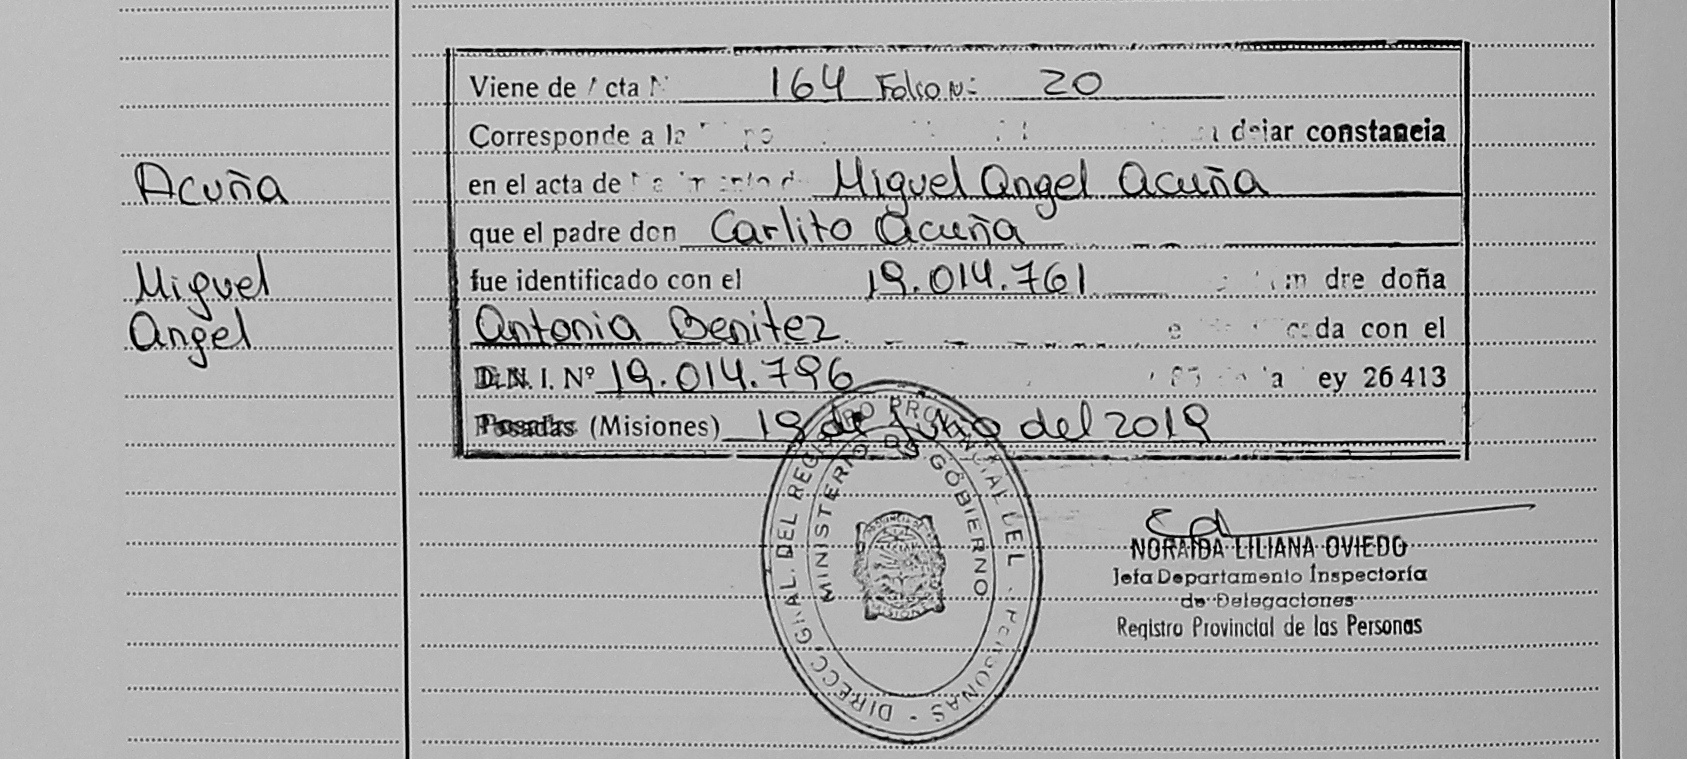 Acuña
Miguel
Angel
Viene de cta N 164 Folio N: 20
Corresponde a la dejar constancia
en el acta de Miguel Angel Acuña
que el padre don Carlito Acuña
fue identificado con el 19.014.761 dre doña
Antonia Benitez da con el
D.N.I. Nº 19.014.796 ey 26413
Posadas (Misiones) 19 de Julio del 2019
DIRECC. GRAL. DEL REGISTRO PROVINCIAL DE L PERSONAS
MINISTERIO DE GOBIERNO
NORAIDA LILIANA OVIEDO
Jefa Departamento Inspectoría
de Delegaciones
Registro Provincial de las Personas